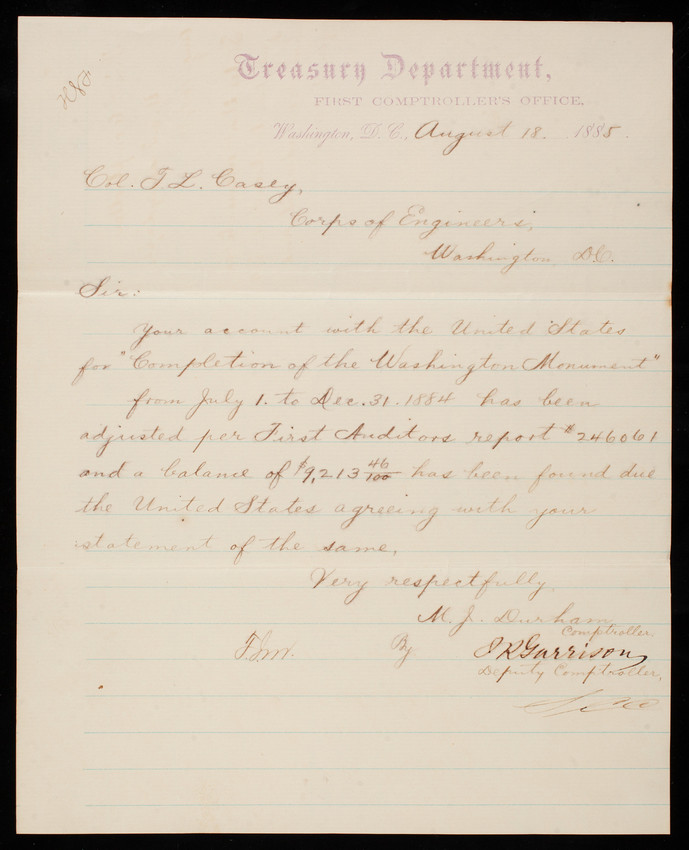 Treasury Department,
FIRST COMPTROLLER'S OFFICE,
Washington, D.C., August 18. 1885.
Col. T L. Casey,
Corps of Engineers,
Washington, D.C.
Sir:
Your account with the United States
for "Completion of the Washington Monument"
from July 1. to Dec. 31. 1884 has been
adjusted per First Auditors report # 246061
and a balance of $9,213 46/100 has been found due
the United States agreeing with your
statement of the same.
Very respectfully,
M. J. Durham
Comptroller.
By J R Garrison
Deputy Comptroller,